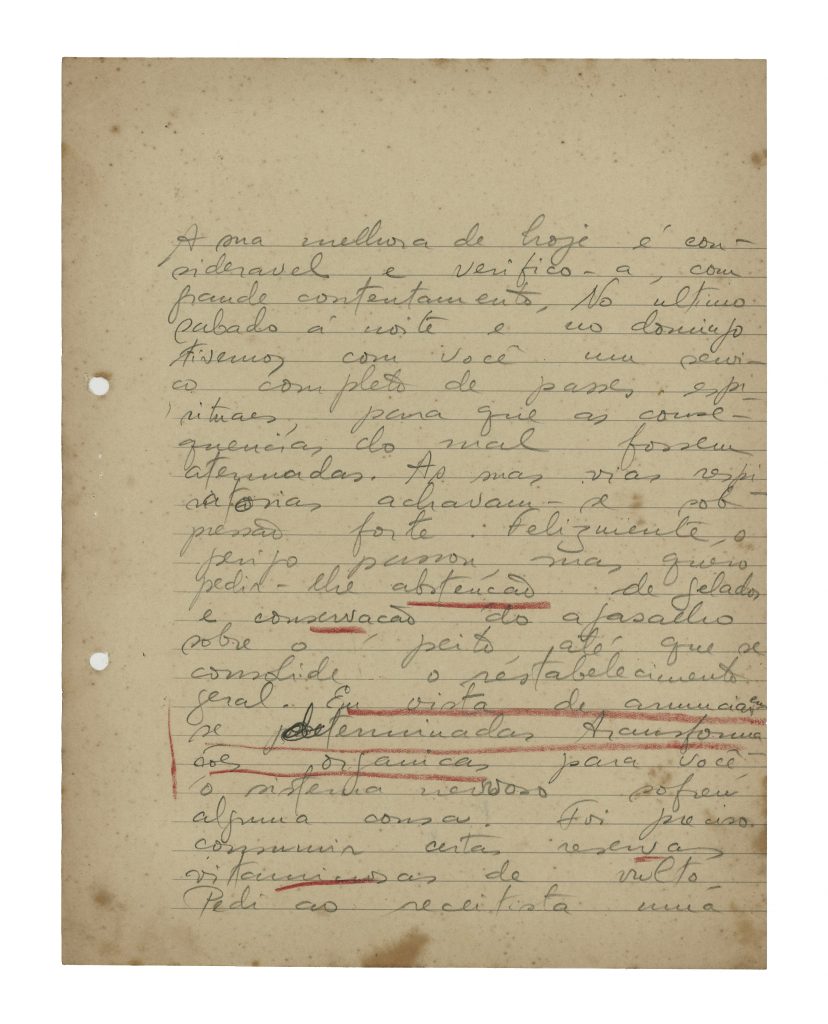 A sua melhora de hoje é con-
sideravel e verifico-a, com
grande contentamento. No ultimo
sabado á noite e no domingo
tivemos com você um servi-
ço completo de passes espi-
rituaes, para que as conse-
quencias do mal fossem
atenuadas. As suas vias respi-
ratorias achavam-se sob
pressão forte. Felizmente, o
perigo passou, mas quero
pedir-lhe abstenção de gelados
e conservação do agasalho
sobre o peito até que se
consolide o restabelecimento
geral. Em vista de anunciarem
se determinadas transforma-
ções organicas para você
o sistema nervoso sofreu
alguma cousa. Foi preciso
consumir certas reservas
vitaminosas de vulto
Pedi ao receitista uma